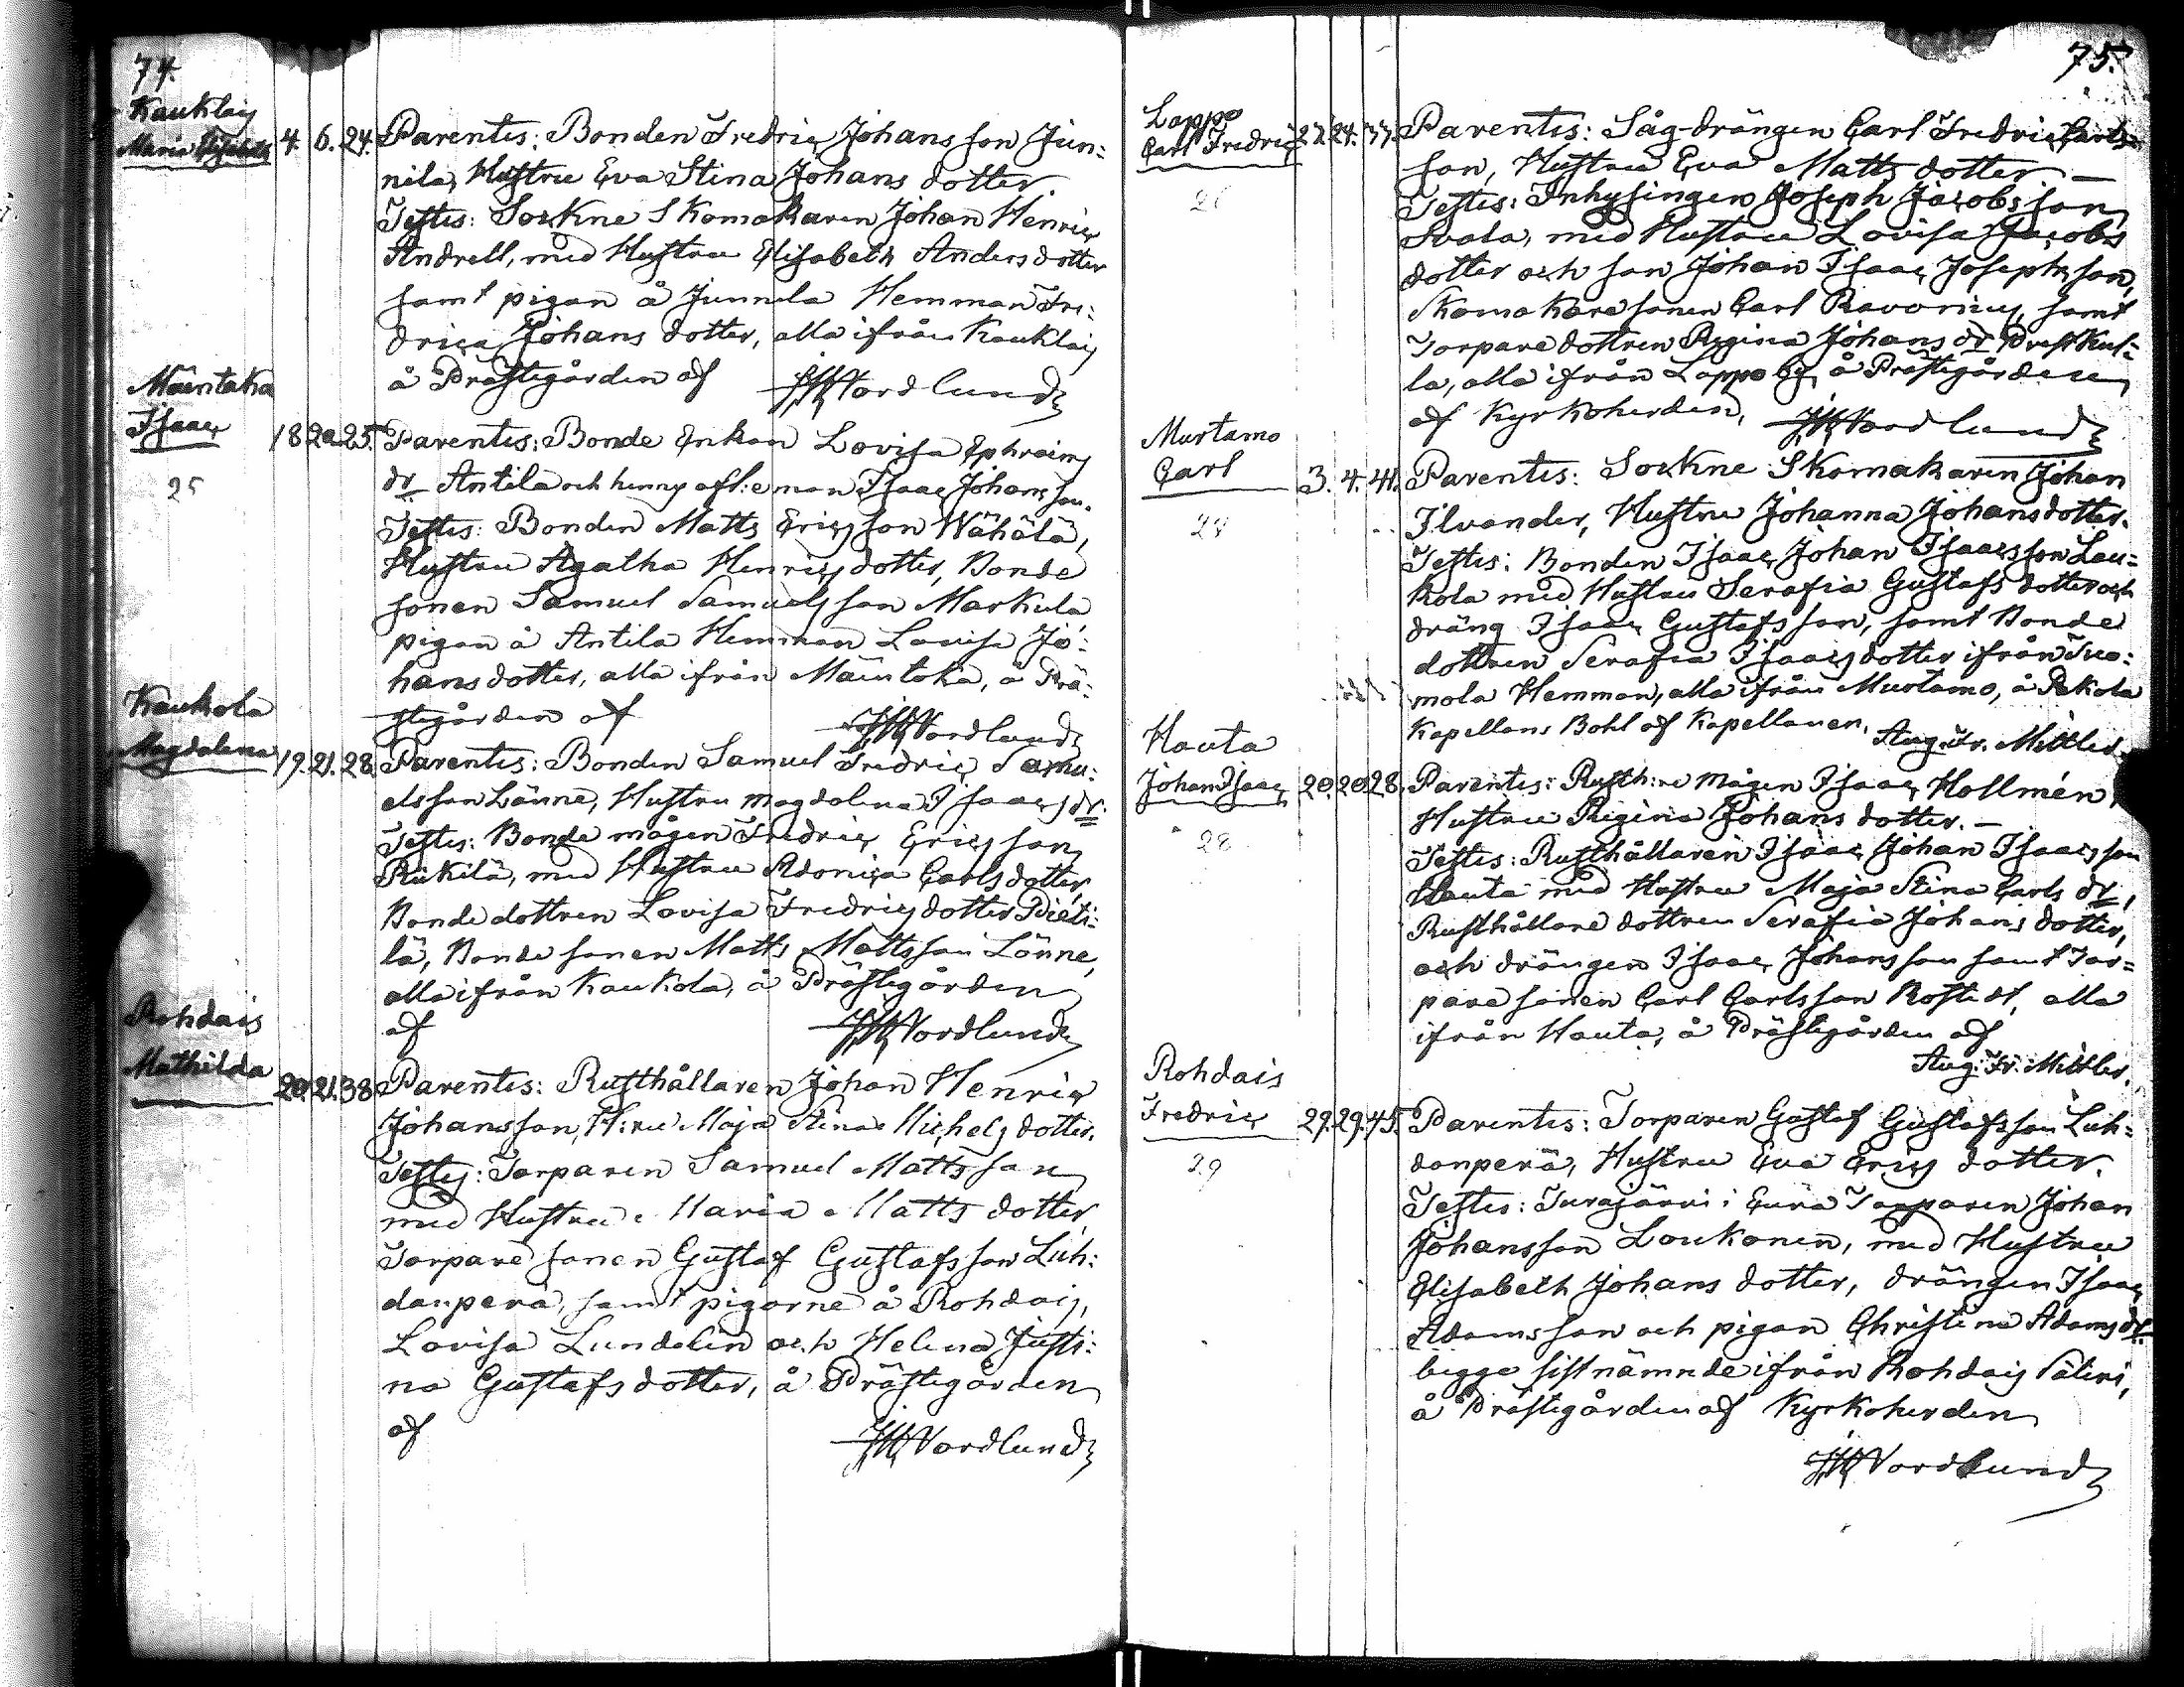 74.
Kauklais
Maria Elisabeth 4. 6. 24. Parentes: Bonden Fredric Johansson Jun:
nila, Hustru Eva Stina Johans dotter.
Testes: Sockne Skomakaren Johan Henric
Andrell, med Hustru Elisabeth Anders dotter
samt pigan å Junnila Hemman Fre:
drica Johans dotter, alla ifrån Kauklais
å Prästegården af JH Nordlund
Mäentaka
Isaac 18. 20. 25. Parentes: Bonde Enkan Lovisa Ephraims
25
dr Antila och hennes afl:e man Isaac Johansson.
Testes: Bonden Matts Ericsson Wähälä,
Hustru Agatha Henrics dotter, Bonde
sonen Samuel Samuelsson Markula
pigan å Antila Hemman Lovisa Jo:
hans dotter, alla ifrån Mäentaka, å Prä:
stegården af JH Nordlund
Kaukola
Magdalena 19. 21. 28. Parentes: Bonden Samuel Fredric Samu:
elsson Länne, Hustru Magdalena Isaacs dr.
Testes: Bonde mågen Fredric Ericsson
Rikilä, med Hustru Adonica Carls dotter,
Bonde dottren Lovisa Fredrics dotter Pieti:
lä, Bonde sonen Matts Mattsson Länne,
alla ifrån Kaukola, å Prästegården
af JH Nordlund
Rohdais
Mathilda 20. 21. 38. Parentes: Rusthållaren Johan Henric
Johansson, H:ru Maja Stina Michels dotter.
Testes: Torparen Samuel Mattsson
med Hustru Maria Matts dotter
Torpare sonen Gustaf Gustafsson Luh:
danperä, samt pigorne å Rohdais,
Lovisa Lundelin och Helena Justi:
na Gustafs dotter, å Prästegården
af JH Nordlund
75.
Lappo
Carl Fredric 22. 24. 37. Parentes: Såg-drängen Carl Fredric Carls
26
son, Hustru Eva Matts dotter.
Testes: Inhysingen Joseph Jacobsson
Svala, med Hustru Lovisa Jacobs
dotter och son Johan Isaac Josephsson,
Skomakare sonen Carl Ravonius, samt
Torpare dottren Regina Johans dr Prestkul:
la, alla ifrån Lappo by, å Prästegården
af Kyrkoherden, JH Nordlund
Murtamo
Carl 3. 4. 41. Parentes: Sockne Skomakaren Johan
Ilvander, Hustru Johanna Johans dotter.
Testes: Bonden Isaac Johan Isaacsson Lau:
kola med Hustru Serafia Gustafs dotter och
dräng Isaac Gustafsson, samt Bonde
dottren Serafia Isaacs dotter ifrån Tuo:
mola Hemman, alla ifrån Murtamo, å Pakola
Kapellans Bohl af Kapellanen, Aug. Fr. Mittler.
Hauta
Johan Isaac 20. 20. 28. Parentes: Rusth:re mågen Isaac Hollmén,
28
Hustru Regina Johans dotter. –
Testes: Rusthållaren Isaac Johan Isaacsson
Hauta med Hustru Maja Stina Carls dr,
Rusthållare dottren Serafia Johans dotter,
och drängen Isaac Johansson samt Tor=
pare sonen Carl Carlsson Rostedt, alla
ifrån Hauta, å Prästegården af
Aug. Fr. Mittler.
Rohdais
Fredric 29. 29. 45. Parentes: Torparen Gustaf Gustafsson Luh=
29
danperä, Hustru Eva Erics dotter.
Testes: Turajärvi i Eura Torparen Johan
Johansson Loukonen, med Hustru
Elisabeth Johans dotter, drängen Isaac
Adamsson och pigan Christina Adams dr.
begge sistnämnde ifrån Rohdais Säteri,
å Prästegården af Kyrkoherden
JH Nordlund